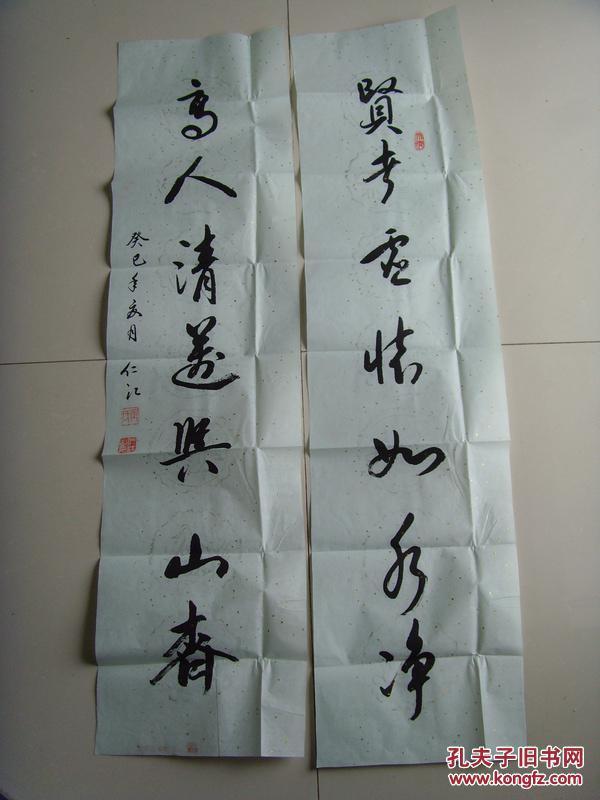 賢者虛懷如水净
高人清邁與山齊
癸巳年夏月 仁江
孔夫子旧书网
www.kongfz.com